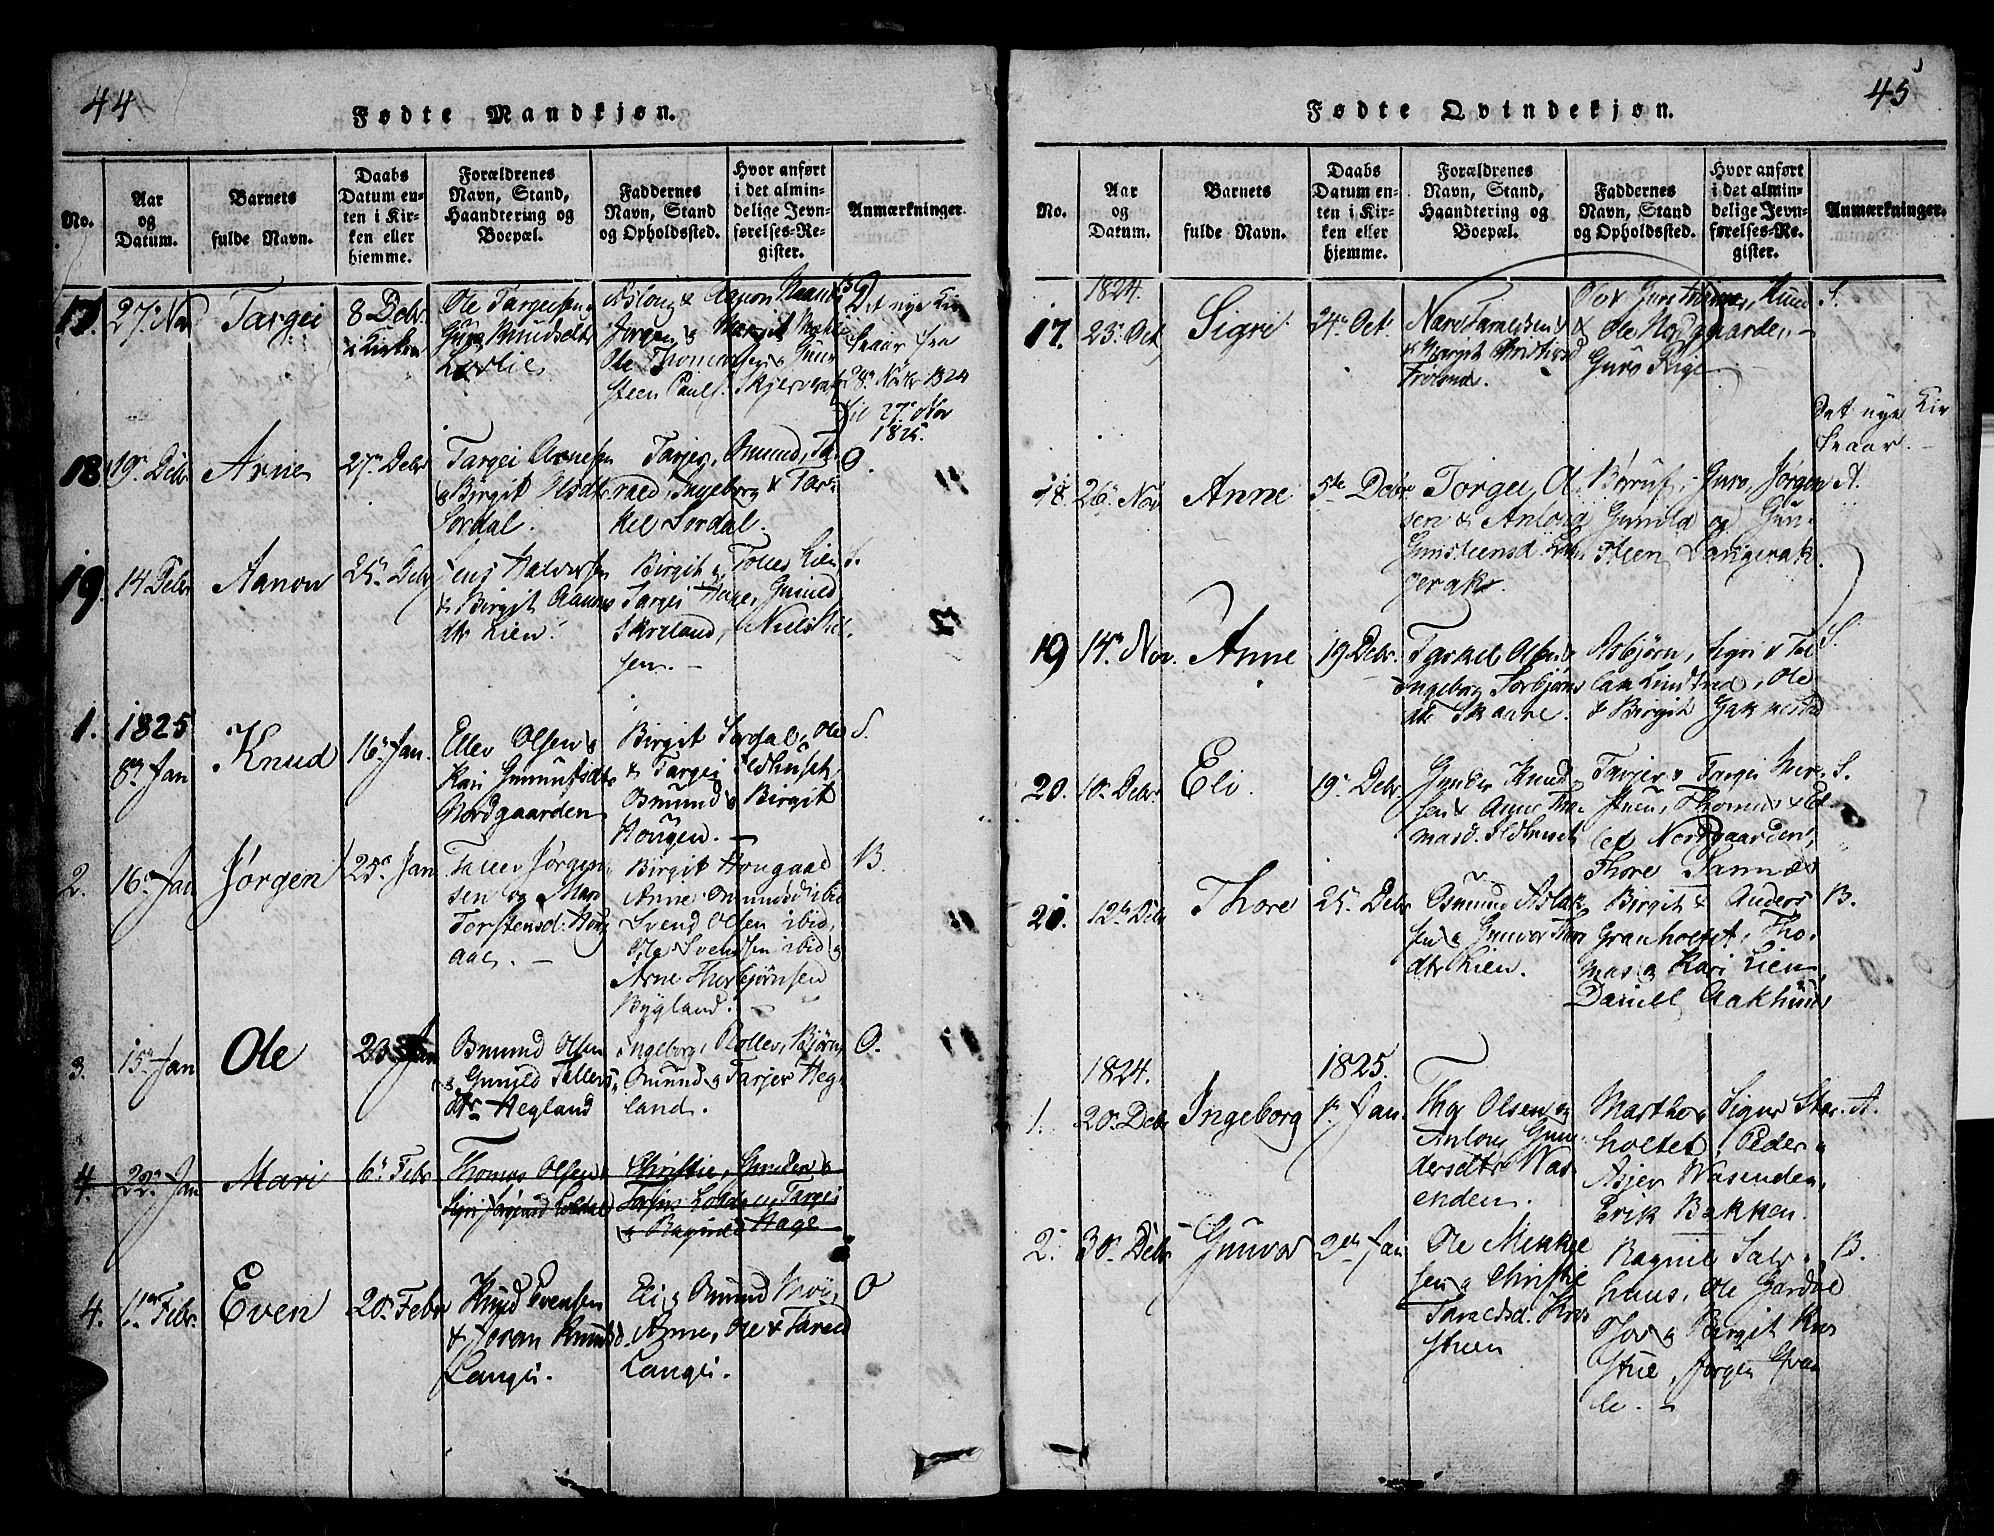 44
Fødte Mandkjøn.
No.
Aar
og
Datum.
Barnets
fulde Navn.
Daabs
Datum en-
ten i Kir-
ken eller
hjemme.
Forældrenes
Navn, Stand,
Haandtering og
Boepæl.
Faddernes
Navn, Stand
og Opholdssted.
Hvor anført
i det almin-
delige Jevn-
førelses-Re-
gister.
Anmærkninger.
17. 27. Nov
Targei
8 Debr.
i Kirken
Ole Targeisen
Knudsdtr
Asloug & Aanon
Jørgen & Margit
Ole Thomas
steen Pauls.
Det nye Kir
keaar fra
28. Novbr 1824
til 27 Nov
1825.
18 19. Debr
Arne
27. Debr
Targei Arnesen
& Birgit Olsdtr
Sordal.
Tarjer, Omund, Ta-
raed, Ingeborg & Tar-
kel Sordal.
O.
19. 14 Debr
Aanon
25. Debr
Jens Halvorsen
& Birgit Aanons
dtr Lien.
Birgit & Tolles Lien
Targei Hage, Gunild
Skreland, Niels Nil-
sen. -
S.
1. 1825
8. Jan
Knud
16. Jan.
Ellev Olsen &
Kari Gunnufsdtr
Nordgaarden
Birgit Sordal, Ole
& Targei Ildhuset,
Osmund & Birgit
Hougen. -
S.
2. 16. Jan
Jørgen
25. Jan
Tallev Jørgen-
sen og Mari
Torstensd: Houg
aae. -
Birgit Hougaae
Anne Omundsd ibid
Svend Olsen ibid,
Ole Svendsen ibid &
Arne Thorbjørnsen
Bygland. -
B.
3. 15. Jan
Ole
23 Jan
Osmund Olsen
& Gunild Tallevs
dtr Hegland
Ingeborg, Rollev, Bjørn,
Omund & Tarjer Heg-
land.
O.
4. 22. Jan
Mari
6. Febr
Thomas Olsen &
Christie, Gunder &
& Ragnild Hage
4. 11. Febr.
Even
20. Febr
Knud Evensen
& Joran Knudsd.
Langei.
Eli & Omund Moi,
Anne, Ole & Taraed
Langei.
O
45
Fødte Qvindekjøn.
No.
Aar
og
Datum.
Barnets
fulde Navn.
Daabs
Datum en-
ten i Kir-
ken eller
hjemme.
Forældrenes
Navn, Stand,
Haandtering og
Boepæl.
Faddernes
Navn, Stand
og Opholdssted.
Hvor anført
i det almin-
delige Jevn-
førelses-Re-
gister.
Anmærkninger.
1824.
17. 23. Oct
Sigri
24. Oct.
& Margit Christensd
Frøisnæ.
Ole Nordgaarden, -
Guro Rige
S.
Det nye Kir
keaar. -
18. 26. Nov
Anne
5te Debr
Torgei, Ol
sen & Anloug
Gunsteensd. Lan-
gerak.
Børuf, Guro, Jørgen
Gunild og Gun-
steen Langerak.
A.
19 14. Nov.
Anne
19 Debr.
Tarkel Olsen &
Ingeborg Torbjøns
dtr Skaare.
Asbjørn, Sigri & Tal
Lindtved, Ole
& Birgit
S.
20. 10. Debr.
Eli.
19. Debr.
Gunder Knud
sen & Anne Tho
masd. Ildhuset
Tarjer & Targei
Thomas &
Nordgaarden,
Thore
S.
21. 12. Debr
Thore
25. Debr
Osmund Aslak
sen & Gunvor Thors
dtr Lien.
Birgit & Anders
Granholtet, Tho-
mas & Kari Lien,
Daniel Aakhuus
B.
1824.
1825.
1. 20. Debr
Ingeborg
1. Jan.
Thor Olsen og
Anloug Gun-
dersdtr Was-
enden.
Marthe & Sigur Stor-
holtet, Peder &
Asjer Wasenden,
Erik Bakken.
A.
2. 30. Debr
Gunvor
2den Jan
Ole Mikkel
sen & Christie
Tareldsd. Kros
stuen
Ragnil Salv-
huus, Ole Jordal
Olov & Birgit Kros
stue, Jørgen Ovan
le. -
B.